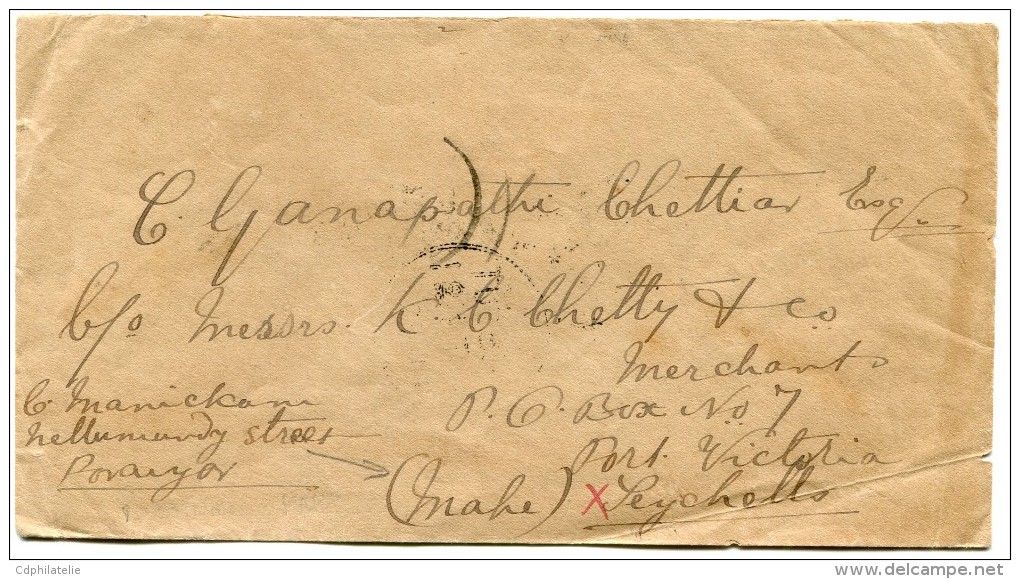 C. Ganapathi Chettiar Esq.
C/o Messrs. K. C Chetty & Co
Merchants
P. O. Box No 7
Port Victoria
(Mahe) X Seychells
C. Manickam
Nellumundy street
Poraiyar
Cdphilatelie
www.delcampe.net